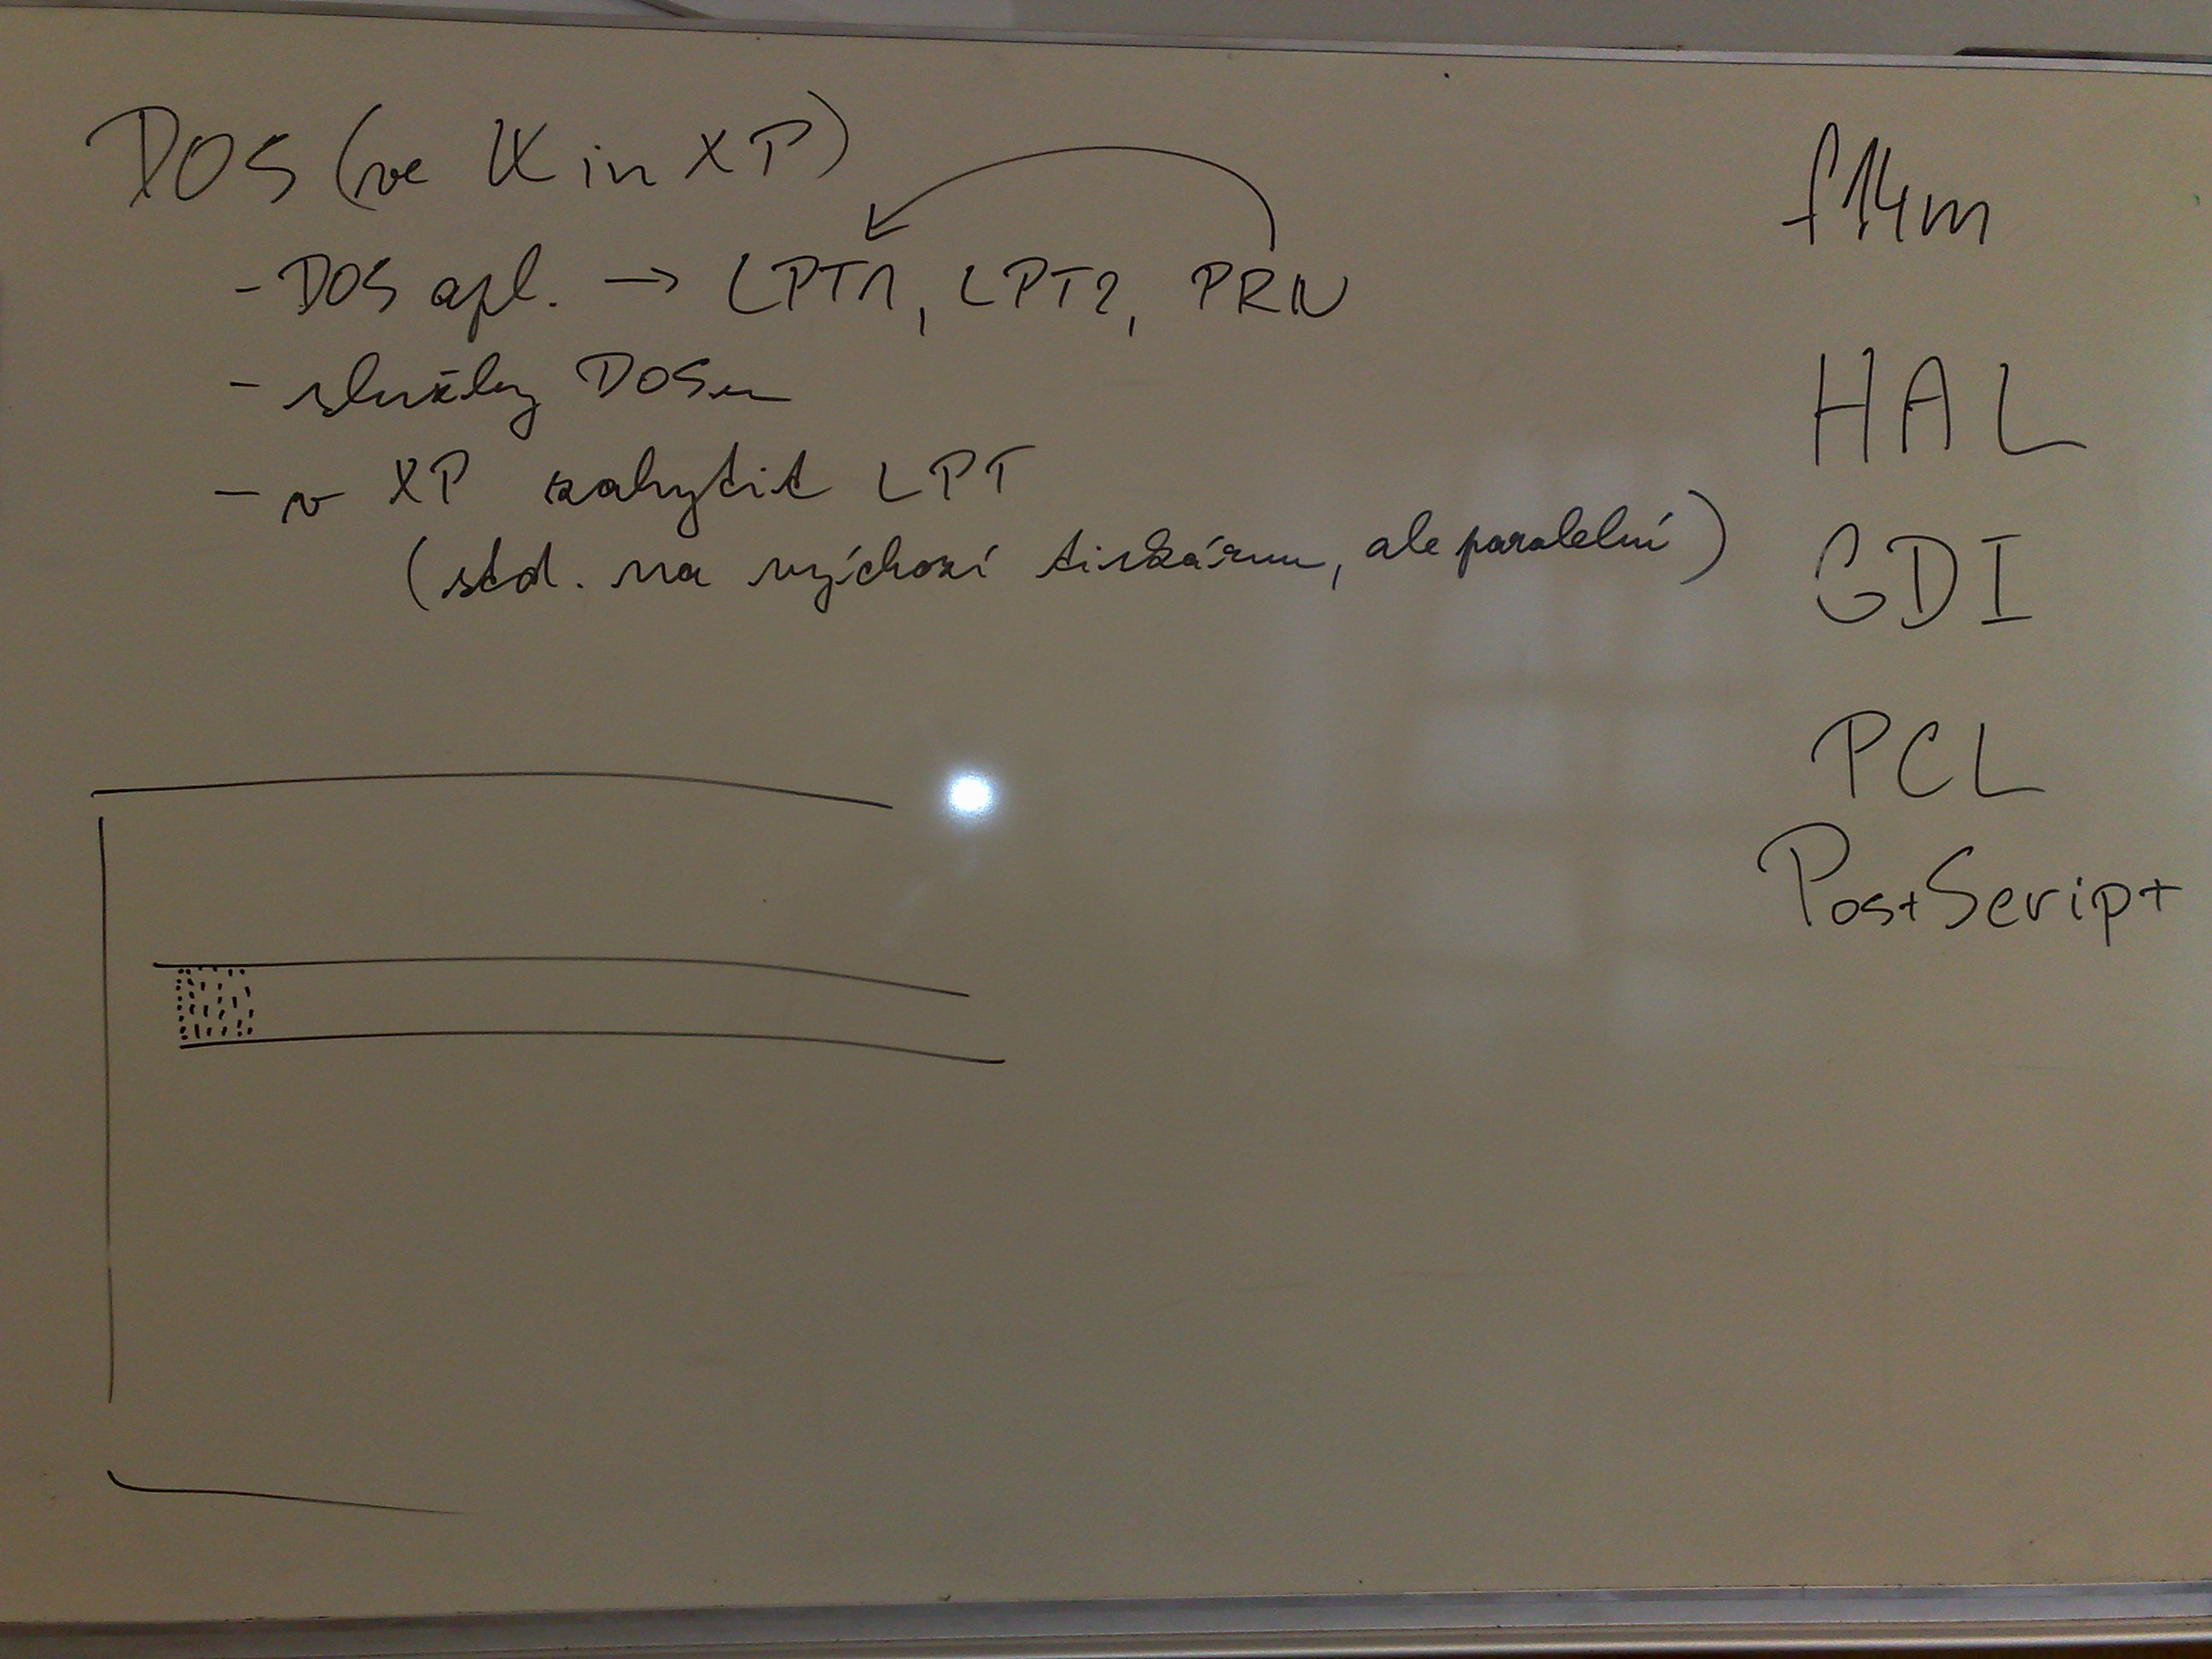 DOS (ve Win XP)
- DOS apl. → LPT1, LPT2, PRN
- služby DOSu
- v XP zachytit LPT
(std. na výchozí tiskárnu, ale paralelní)
f14m
HAL
GDI
PCL
PostScript